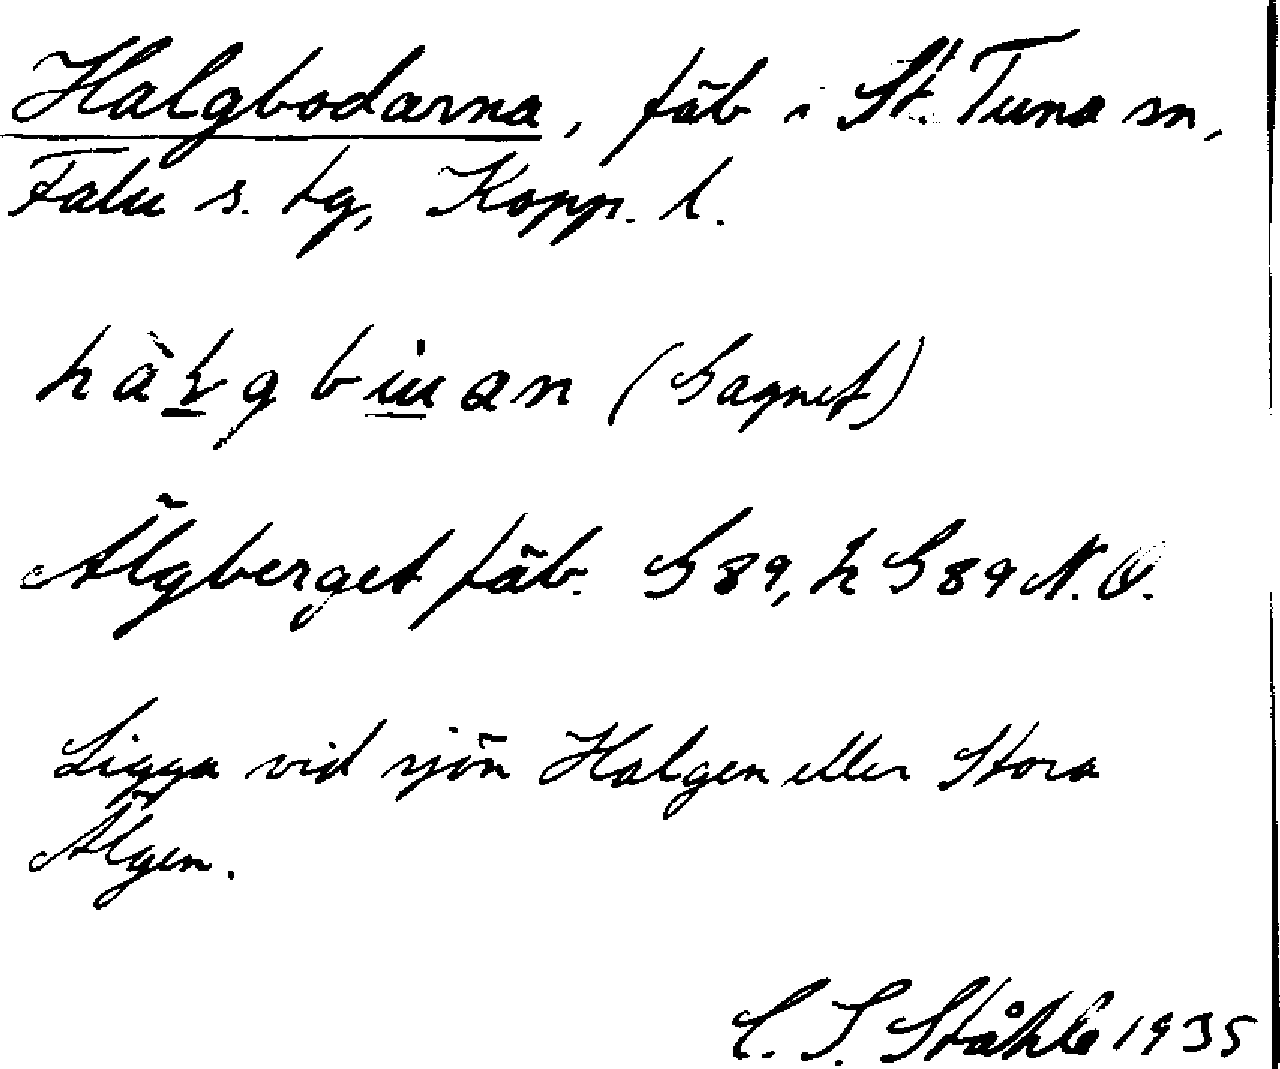 Halgbodarna, fäb i St. Tuna sn,
Falu s. tg, Kopp. l.
(Gagnef)
Älgberget fäb. G 89, h G 89 N.O.
Ligga vid sjön Halgen eller Stora
Älgen.
C. I. Ståhle 1935